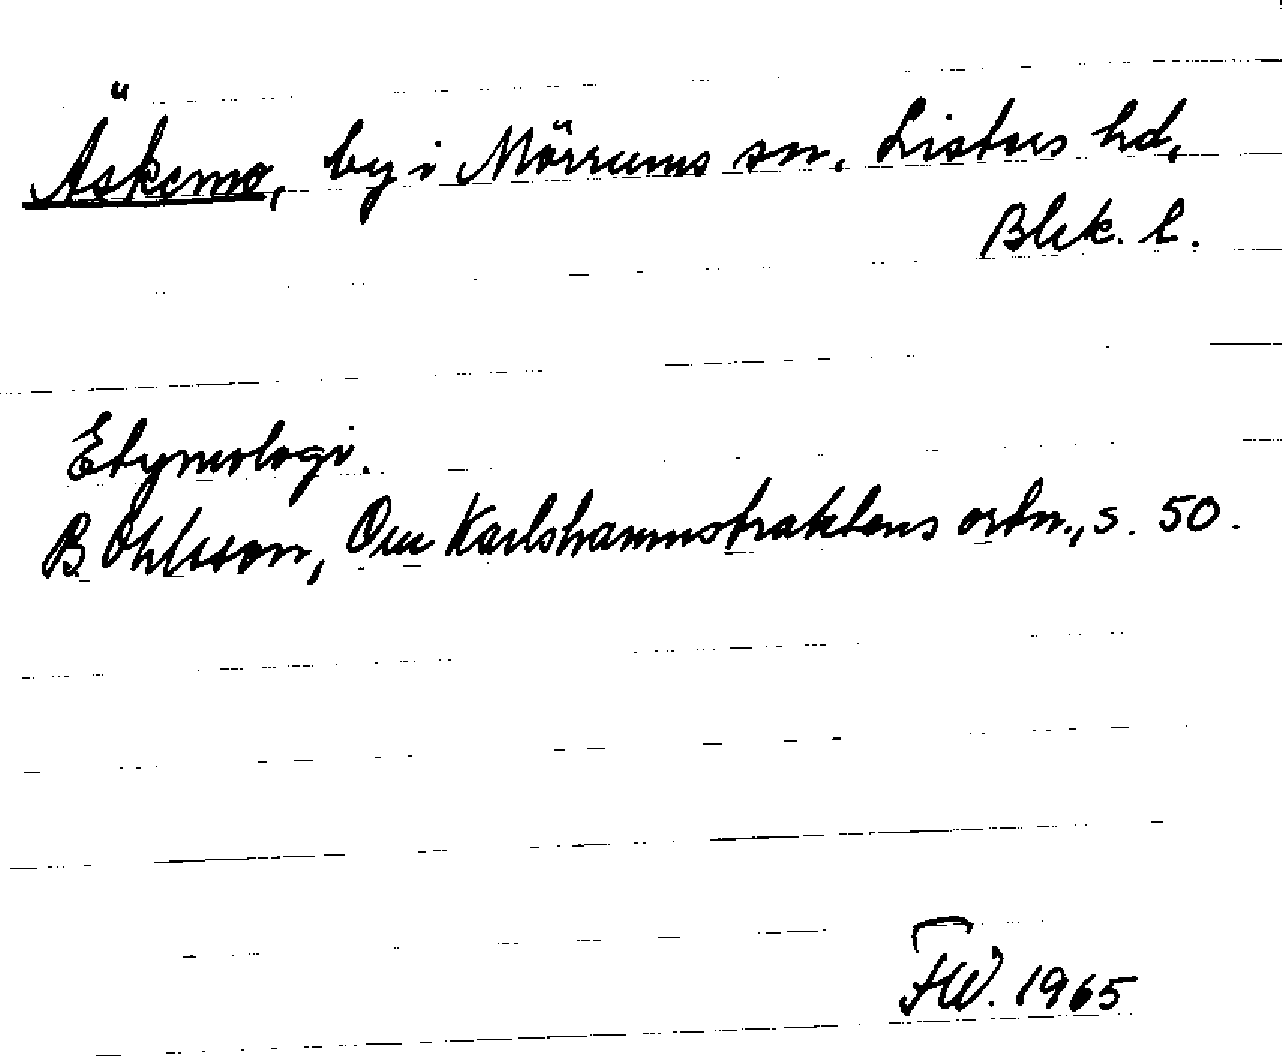 Äskemo, by i Mörrums sn. Listers hd,
Blek. l.
Etymologi.
B. Ohlsson, Om Karlshamnstraktens ortn., s. 50.
FW. 1965